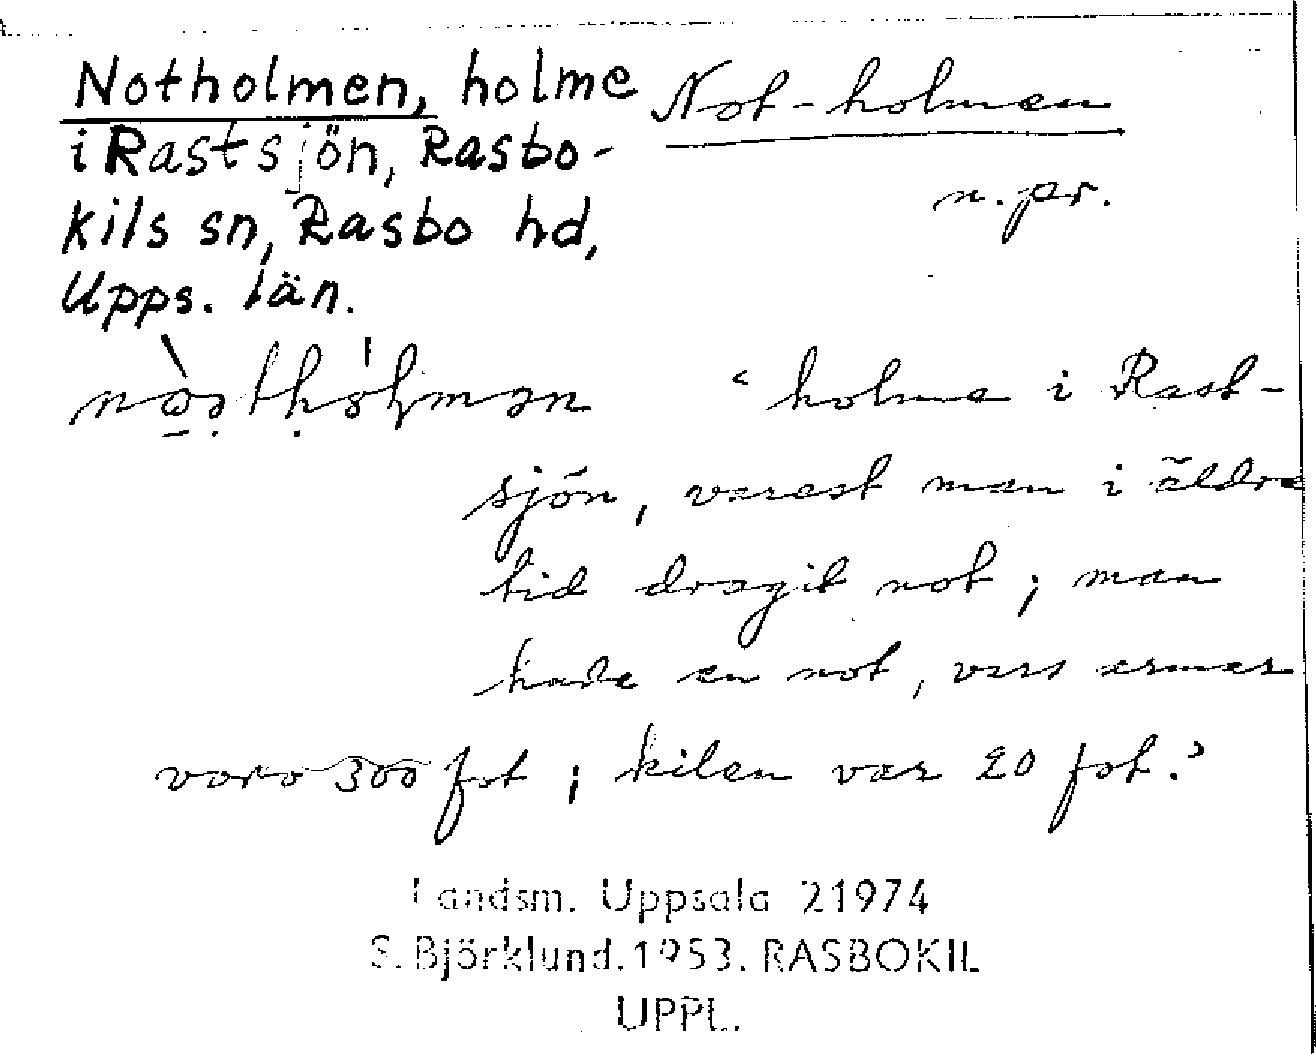 Notholmen, holme
i Rastsjön, Rasbo-
kils sn, Rasbo hd,
Upps. län.
Not-holmen
n. pr.
‘holme i Rast-
sjön, varest man i äldre
tid dragit not; man
hade en not, vars armar
voro 300 fot; kilen var 20 fot.’
Landsm. Uppsala 21974
S. Björklund. 1953. RASBOKIL
UPPL.